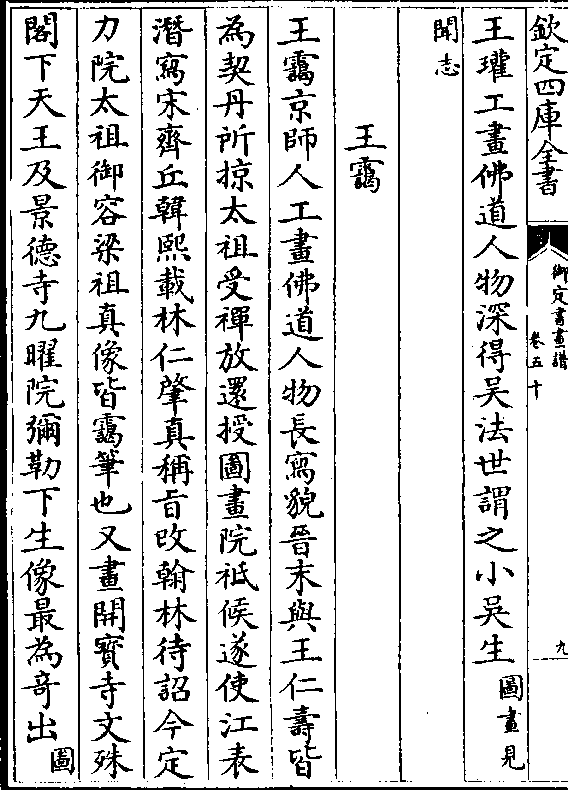 欽定四庫全書
御定書畫譜
卷五十
九
王瓘工畫佛道人物深得吳法世謂之小吳生圖畫見
聞志
王靄
王靄京師人工畫佛道人物長寫貌晉末與王仁壽皆
為契丹所掠太祖受禪放還授圖畫院祗候遂使江表
潛寫宋齊丘韓熙載林仁肇真稱旨改翰林待詔今定
力院太祖御容梁祖真像皆靄筆也又畫開寶寺文殊
閣下天王及景德寺九曜院彌勒下生像最為奇出圖